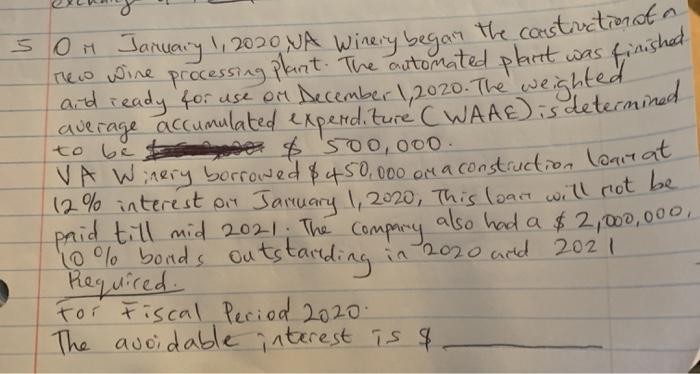 exchang
5 On January 1, 2020, VA Winery began the constiuction of a
new wine processing plant. The automated plant was finished
and ready for use on December 1, 2020. The weighted
average accumulated expenditure (WAAE) is determined
to be $ 500,000.
VA Winery borrowed $ 450,000 on a construction loan at
12% interest on January 1, 2020, This loan will not be
paid till mid 2021. The company also had a $ 2,000,000,
10% bonds outstanding in 2020 and 2021
Required.
For Fiscal Period 2020.
The avoidable interest is $ ________